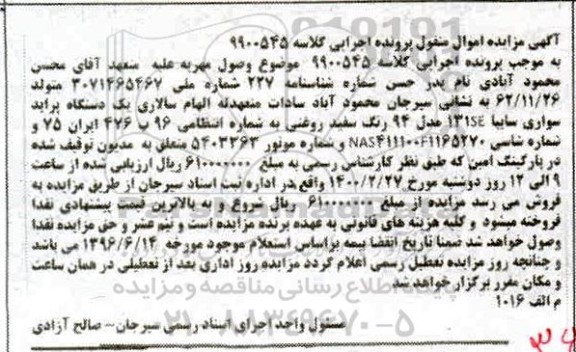 آگهی مزایده اموال منقول پرونده اجرایی کلاسه ۹۹۰۰۵۴۵
به موجب پرونده اجرایی کلاسه ۹۹۰۰۵۴۵ موضوع وصول مهریه علیه متعهد آقای محسن
محمود آبادی نام پدر حسن شماره شناسنامه ۲۳۷ شماره ملی ۳۰۷۱۴۶۵۴۶۷ متولد
۶۲/۱۱/۲۶ به نشانی سیرجان محمود آباد سادات متعهدله الهام سالاری یک دستگاه پراید
سواری سایپا ۱۳۱SE مدل ۹۴ رنگ سفید روغنی به شماره انتظامی ۹۶ ب ۴۷۶ ایران ۷۵ و
شماره شاسی NAS۴۱۱۱۰۰F۱۱۶۵۲۷۰ و شماره موتور ۵۴۰۳۳۶۳ متعلق به مدیون توقیف شده
در پارکینگ امین که طبق نظر کارشناس رسمی به مبلغ ۶۱۰۰۰۰۰۰۰ ریال ارزیابی شده از ساعت
۹ الی ۱۲ روز دوشنبه مورخ ۱۴۰۰/۲/۲۷ واقع در اداره ثبت اسناد سیرجان از طریق مزایده به
فروش می رسد مزایده از مبلغ ۶۱۰۰۰۰۰۰۰ ریال شروع و به بالاترین قیمت پیشنهادی نقدا
فروخته میشود و کلیه هزینه های قانونی به عهده برنده مزایده است و نیم عشر و حق مزایده نقدا
وصول خواهد شد ضمنا تاریخ انقضا بیمه براساس استعلام موجود مورخه ۱۳۹۶/۶/۱۴ می باشد
و چنانچه روز مزایده تعطیل رسمی اعلام گردد مزایده روز اداری بعد از تعطیلی در همان ساعت
و مکان مقرر برگزار خواهد شد
پایگاه اطلاع رسانی مناقصه و مزایده
م الف ۱۰۱۶
۰۲۱-۸۸۳۴۹۶۷۰-۵
مسئول واحد اجرای اسناد رسمی سیرجان- صالح آزادی